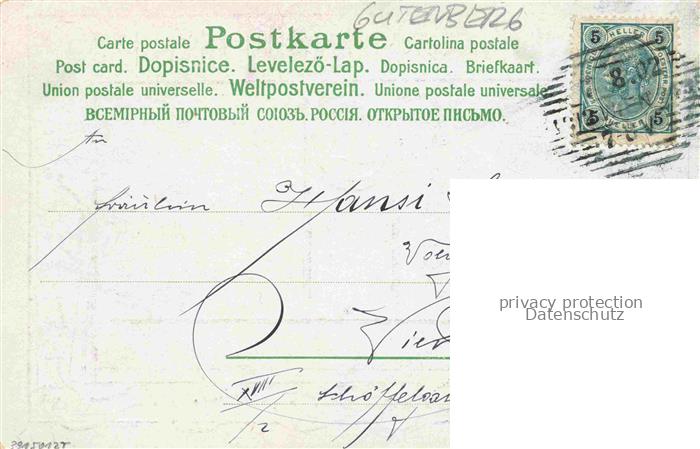 GUTENBERG
Carte postale Postkarte Cartolina postale
Post card. Dopisnice. Levelező-Lap. Dopisnica. Briefkaart.
Union postale universelle. Weltpostverein. Unione postale universale
ВСЕМІРНЫЙ ПОЧТОВЫЙ СОЮЗЪ. РОССІЯ. ОТКРЫТОЕ ПИСЬМО.
5 HELLER 5
8.02
5 5
An
Fräulein Hansi
privacy protection
Datenschutz
Wien
XVIII/2
3915012T